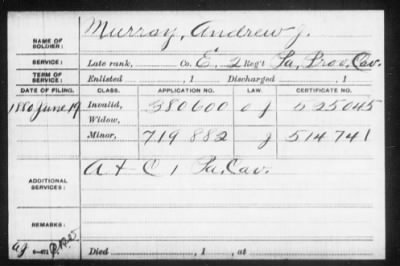 NAME OF SOLDIER: Murray, Andrew J.
SERVICE: Late rank, Co. E, 2 Reg't Pa. Prov. Cav.
TERM OF SERVICE: Enlisted , 1 Discharged , 1
DATE OF FILING. CLASS. APPLICATION NO. LAW. CERTIFICATE NO.
1880 June 19 Invalid, 380600 525045
Widow,
Minor, 719 882 g 514741
ADDITIONAL SERVICES: A + C 1 Pa. Cav.
REMARKS:
Died , 1 , at